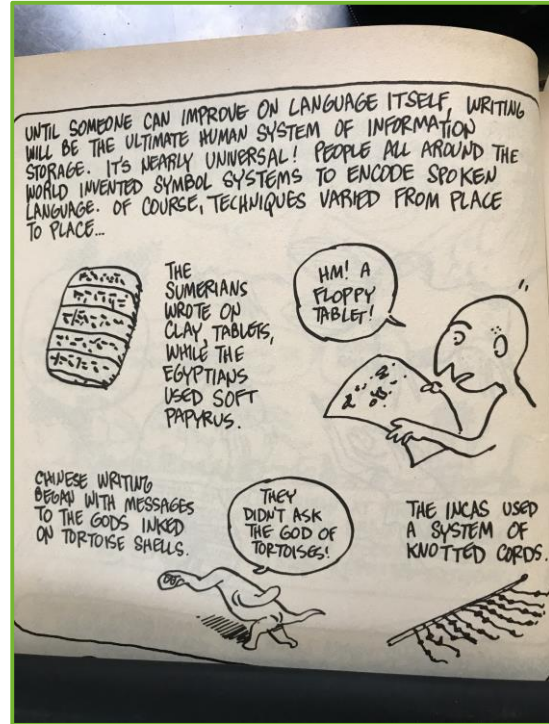 UNTIL SOMEONE CAN IMPROVE ON LANGUAGE ITSELF, WRITING
WILL BE THE ULTIMATE HUMAN SYSTEM OF INFORMATION
STORAGE. IT'S NEARLY UNIVERSAL! PEOPLE ALL AROUND THE
WORLD INVENTED SYMBOL SYSTEMS TO ENCODE SPOKEN
LANGUAGE. OF COURSE, TECHNIQUES VARIED FROM PLACE
TO PLACE...
THE
SUMERIANS
WROTE ON
CLAY, TABLETS,
WHILE THE
EGYPTIANS
USED SOFT
PAPYRUS.
HM! A
FLOPPY
TABLET!
CHINESE WRITING
BEGAN WITH MESSAGES
TO THE GODS INKED
ON TORTOISE SHELLS.
THEY
DIDN'T ASK
THE GOD OF
TORTOISES!
THE INCAS USED
A SYSTEM OF
KNOTTED CORDS.